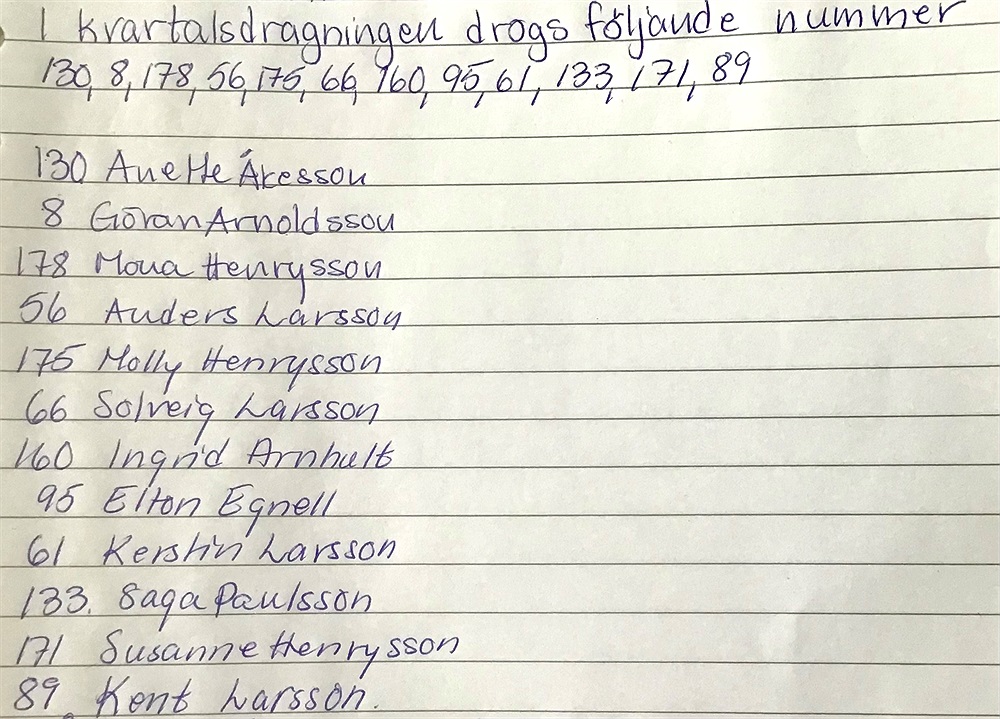 I kvartalsdragningen drogs följande nummer
130, 8, 178, 56, 175, 66, 160, 95, 61, 133, 171, 89
130 Anette Åkesson
8 Göran Arnoldsson
178 Mona Henrysson
56 Anders Larsson
175 Molly Henrysson
66 Solveig Larsson
160 Ingrid Arnhult
95 Elton Egnell
61 Kerstin Larsson
133. Saga Paulsson
171 Susanne Henrysson
89. Kent Larsson.